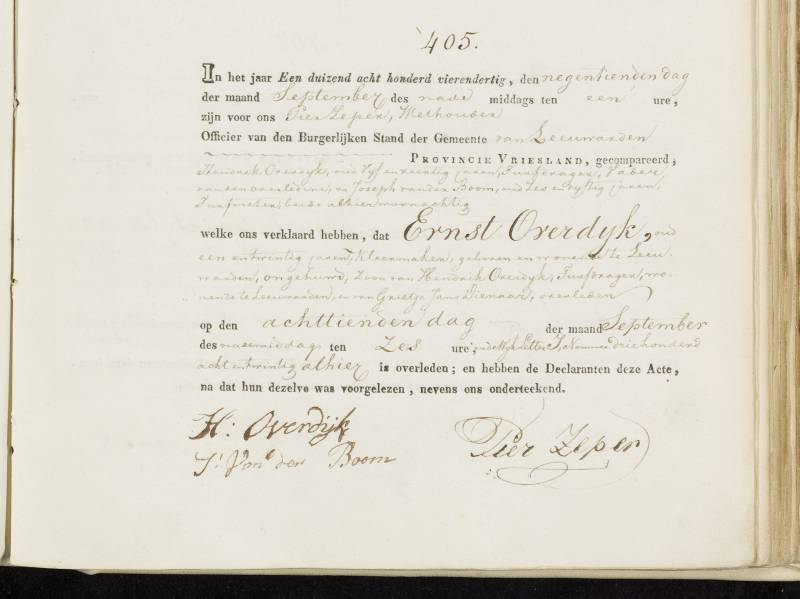 405.
In het jaar Een duizend acht honderd vierendertig, den negentienden dag
der maand September des nade middags ten een ure,
zijn voor ons Pier Zeper, Wethouder
Officier van den Burgerlijken Stand der Gemeente van Leeuwarden
PROVINCIE VRIESLAND, gecompareerd,
Hendrik Overdyk, oud vyf en zeventig jaren, Turfdrager, Vader
van den overledene, en Joseph van der Boom, oud zes en vyftig jaren,
Turfmeter, beide alhier woonachtig
welke ons verklaard hebben, dat Ernst Overdyk, oud
een en twintig jaren, Kleermaker, geboren en wonende te Leeu-
warden, ongehuwd, Zoon van Hendrik Overdyk, Turfdrager, wo-
nende te Leeuwarden, en van Grietje Jans Dienaar, overleden
op den achttienden dag der maand September
des namiddags ten Zes ure, in de Wyk Letter I, Nommer driehonderd
acht en twintig alhier is overleden; en hebben de Declaranten deze Acte,
na dat hun dezelve was voorgelezen, nevens ons onderteekend.
H: Overdijk
J. Van der Boom
Pier Zeper